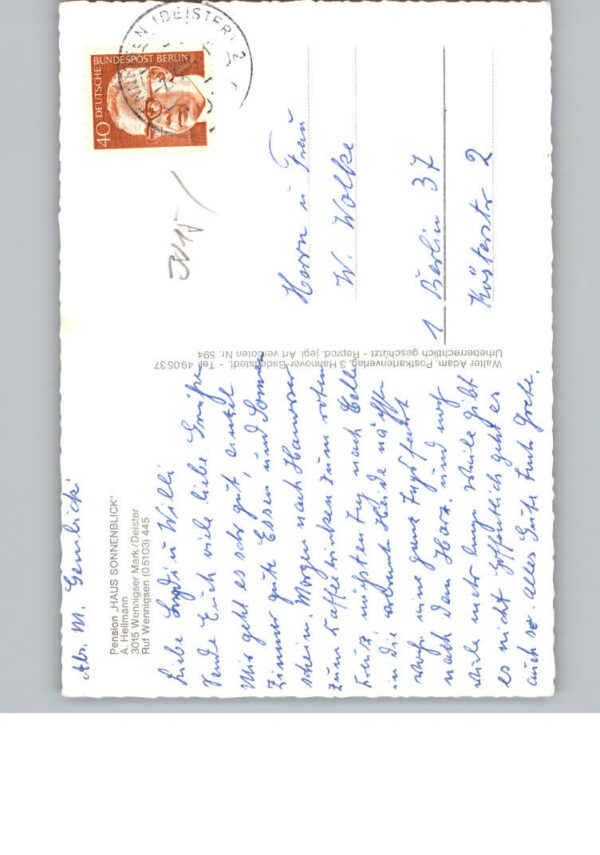 Abs. M. Gemlicki
Pension „HAUS SONNENBLICK"
A. Heilmann
3015 Wennigser Mark/Deister
Ruf Wennigsen (05103) 445
Liebe u Willi
Sende Euch viele liebe Grüße
Mir geht es sehr gut, einzel
Zimmer gute Essen und Sonnen
schein. Morgen nach Hannover
zum Kaffetrinken zum roten
nächsten Tag nach Celle
in die Heide
eine ganze Tagesfahrt
nach dem Harz. und noch
viele mehr lange Weile gibt
es nicht hoffentlich geht es
auch so. Alles Gute Euch Grete.
Walter Adam, Postkartenverlag, 3 Hannover-Badenstedt. - Tel. 490537
Urheberrechtlich geschützt - Reprod. jegl. Art verboten Nr. 594
DEUTSCHE BUNDESPOST BERLIN
40
WENNIGSEN (DEISTER) 2
Herrn u Frau
W. Wolke
1 Berlin 37
Küsterstr 2